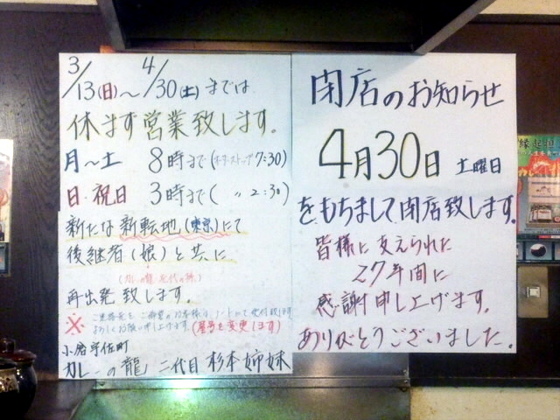 3/13(日)～4/30(土)までは
休まず営業致します。
月～土 8時まで(オーダーストップ7:30)
日・祝日 3時まで( 〃 2:30)
新たな新転地(東京)にて
後継者(娘)と共に
再出発致します。
※
(屋号を変更します)
小倉宇佐町
カレーの龍 二代目 杉本姉妹
閉店のお知らせ
4月30日 土曜日
をもちまして閉店致します。
皆様に支えられた
27年間に
感謝申し上げます。
ありがとうございました。